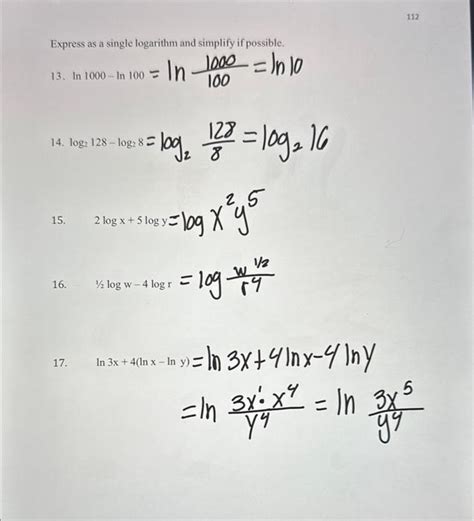 112
Express as a single logarithm and simplify if possible.
13. ln 1000 – ln 100 = ln 1000/100 = ln 10
14. log₂ 128 – log₂ 8 = log₂ 128/8 = log₂ 16
15. 2 log x + 5 log y = log x²y⁵
16. ½ log w – 4 log r = log w^1/2/r⁴
17. ln 3x + 4(ln x – ln y) = ln 3x + 4 ln x - 4 ln y
= ln 3x¹·x⁴/y⁴ = ln 3x⁵/y⁴